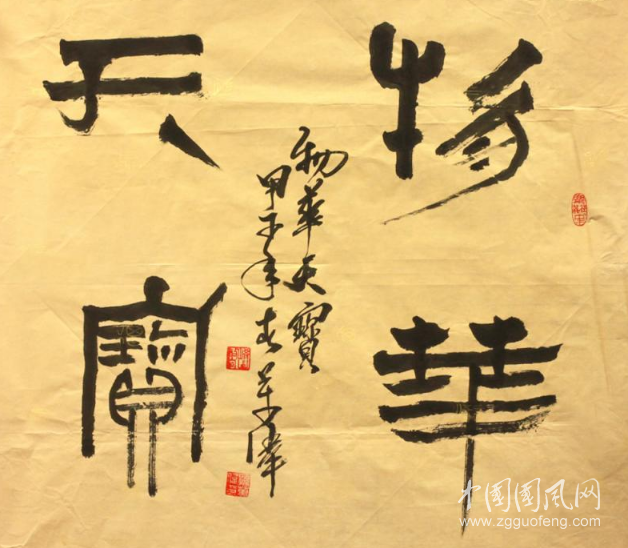 物華
天寶
物華天寶
甲子年
中国國风网
www.zgguofeng.com